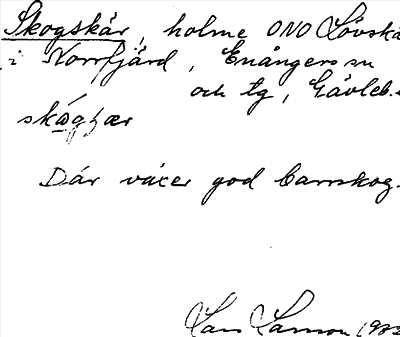 Skogskär, holme ONO Lövskä
i Norrfjärd, Enångers sn
och tg, Gävleb.
skọ́gʂær
Där växer god barrskog.
Lars Larsson 1933